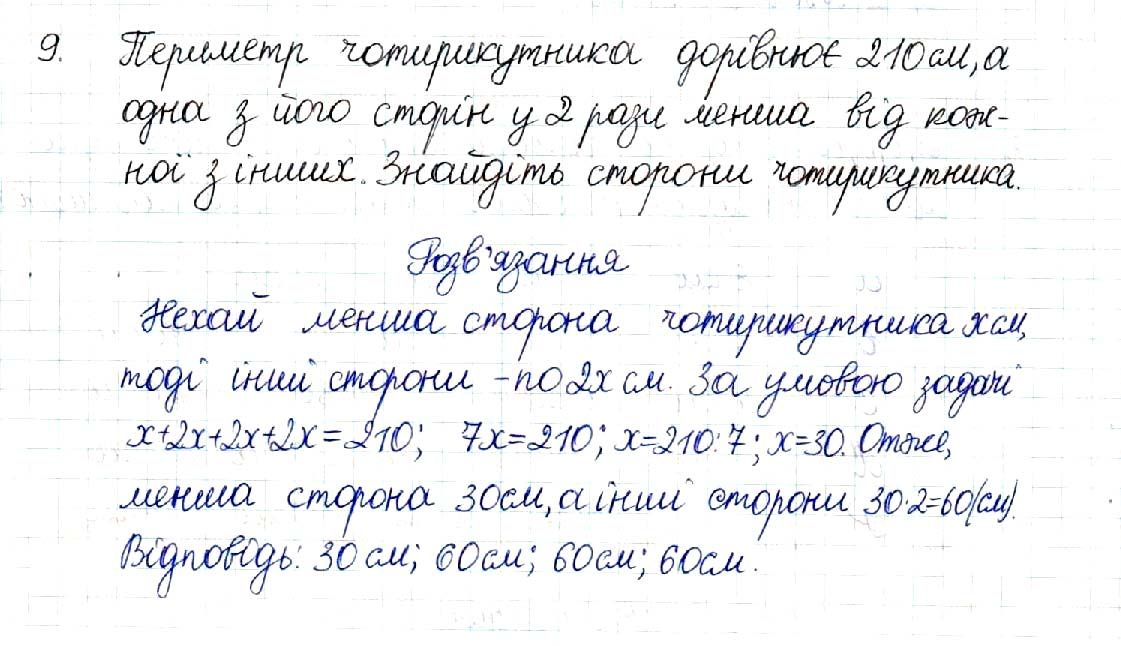 9. Периметр чотирикутника дорівнює 210 см, а
одна з його сторін у 2 рази менша від кож-
ної з інших. Знайдіть сторони чотирикутника.
Розв'язання
Нехай менша сторона чотирикутника x см,
тоді інші сторони – по 2x см. За умовою задачі
x+2x+2x+2x=210; 7x=210; x=210:7; x=30. Отже,
менша сторона 30 см, а інші сторони 30·2=60(см).
Відповідь: 30 см; 60 см; 60 см; 60 см.